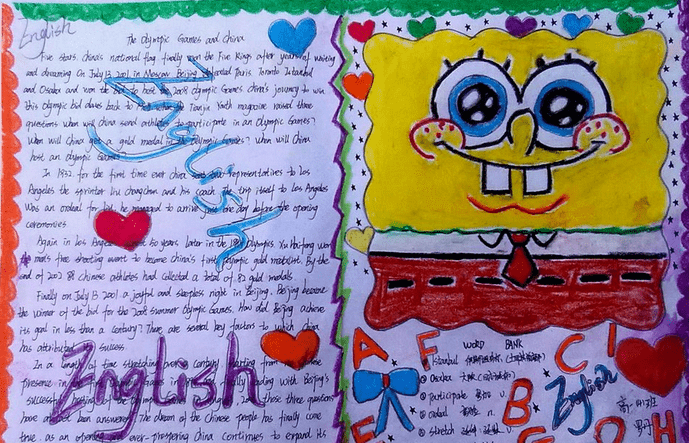 English
The Olympic Games and China
Five stars. China's national flag finally won the Five Rings after years of waiting
and dreaming On July 13 2001 in Moscow Beijing Paris Toronto Istanbul
and Osaka and won the bid to host the 2008 Olympic Games China's journey to win
this olympic bid dates back to Tianjin Youth magazine raised three
questions when will China send athletes to participate in an Olympic Games?
When will China get a gold medal in the Olympic Games? when will China
host an olympic Games
English
In 1932 for the first time ever china representatives to Los
Angeles the sprinter Liu changchun and his coach The trip itself to Los Angeles
Was an ordeal for he managed to arrive just one day before the opening
ceremonies
Again in Los Angeles years later in the Olympics. Xu Hai-fong won
men's free shooting event to become china's first olympic gold medalist. By the
end of 2002 chinese athletes had collected a total of gold medals
Finally on July 13 2001 a joyful and sleepless night in Beijing. Beijing became
the winner of the bid for the 2008 summer Olympic Games. How did Beijing achieve
its goal in less than a century? There are several key factors to which china
has attributed success
English
In a length of time stretching over a century starting from
presence in finally ending with Beijing's
success hosting of those three questions
have been answered The dream of the Chinese people has finally come
true. as an opening ever-prospering China continues to expand its
WORD BANK
Istanbul
Osaka
participate v.
n.
stretch
A F C I
B
E G O H
English